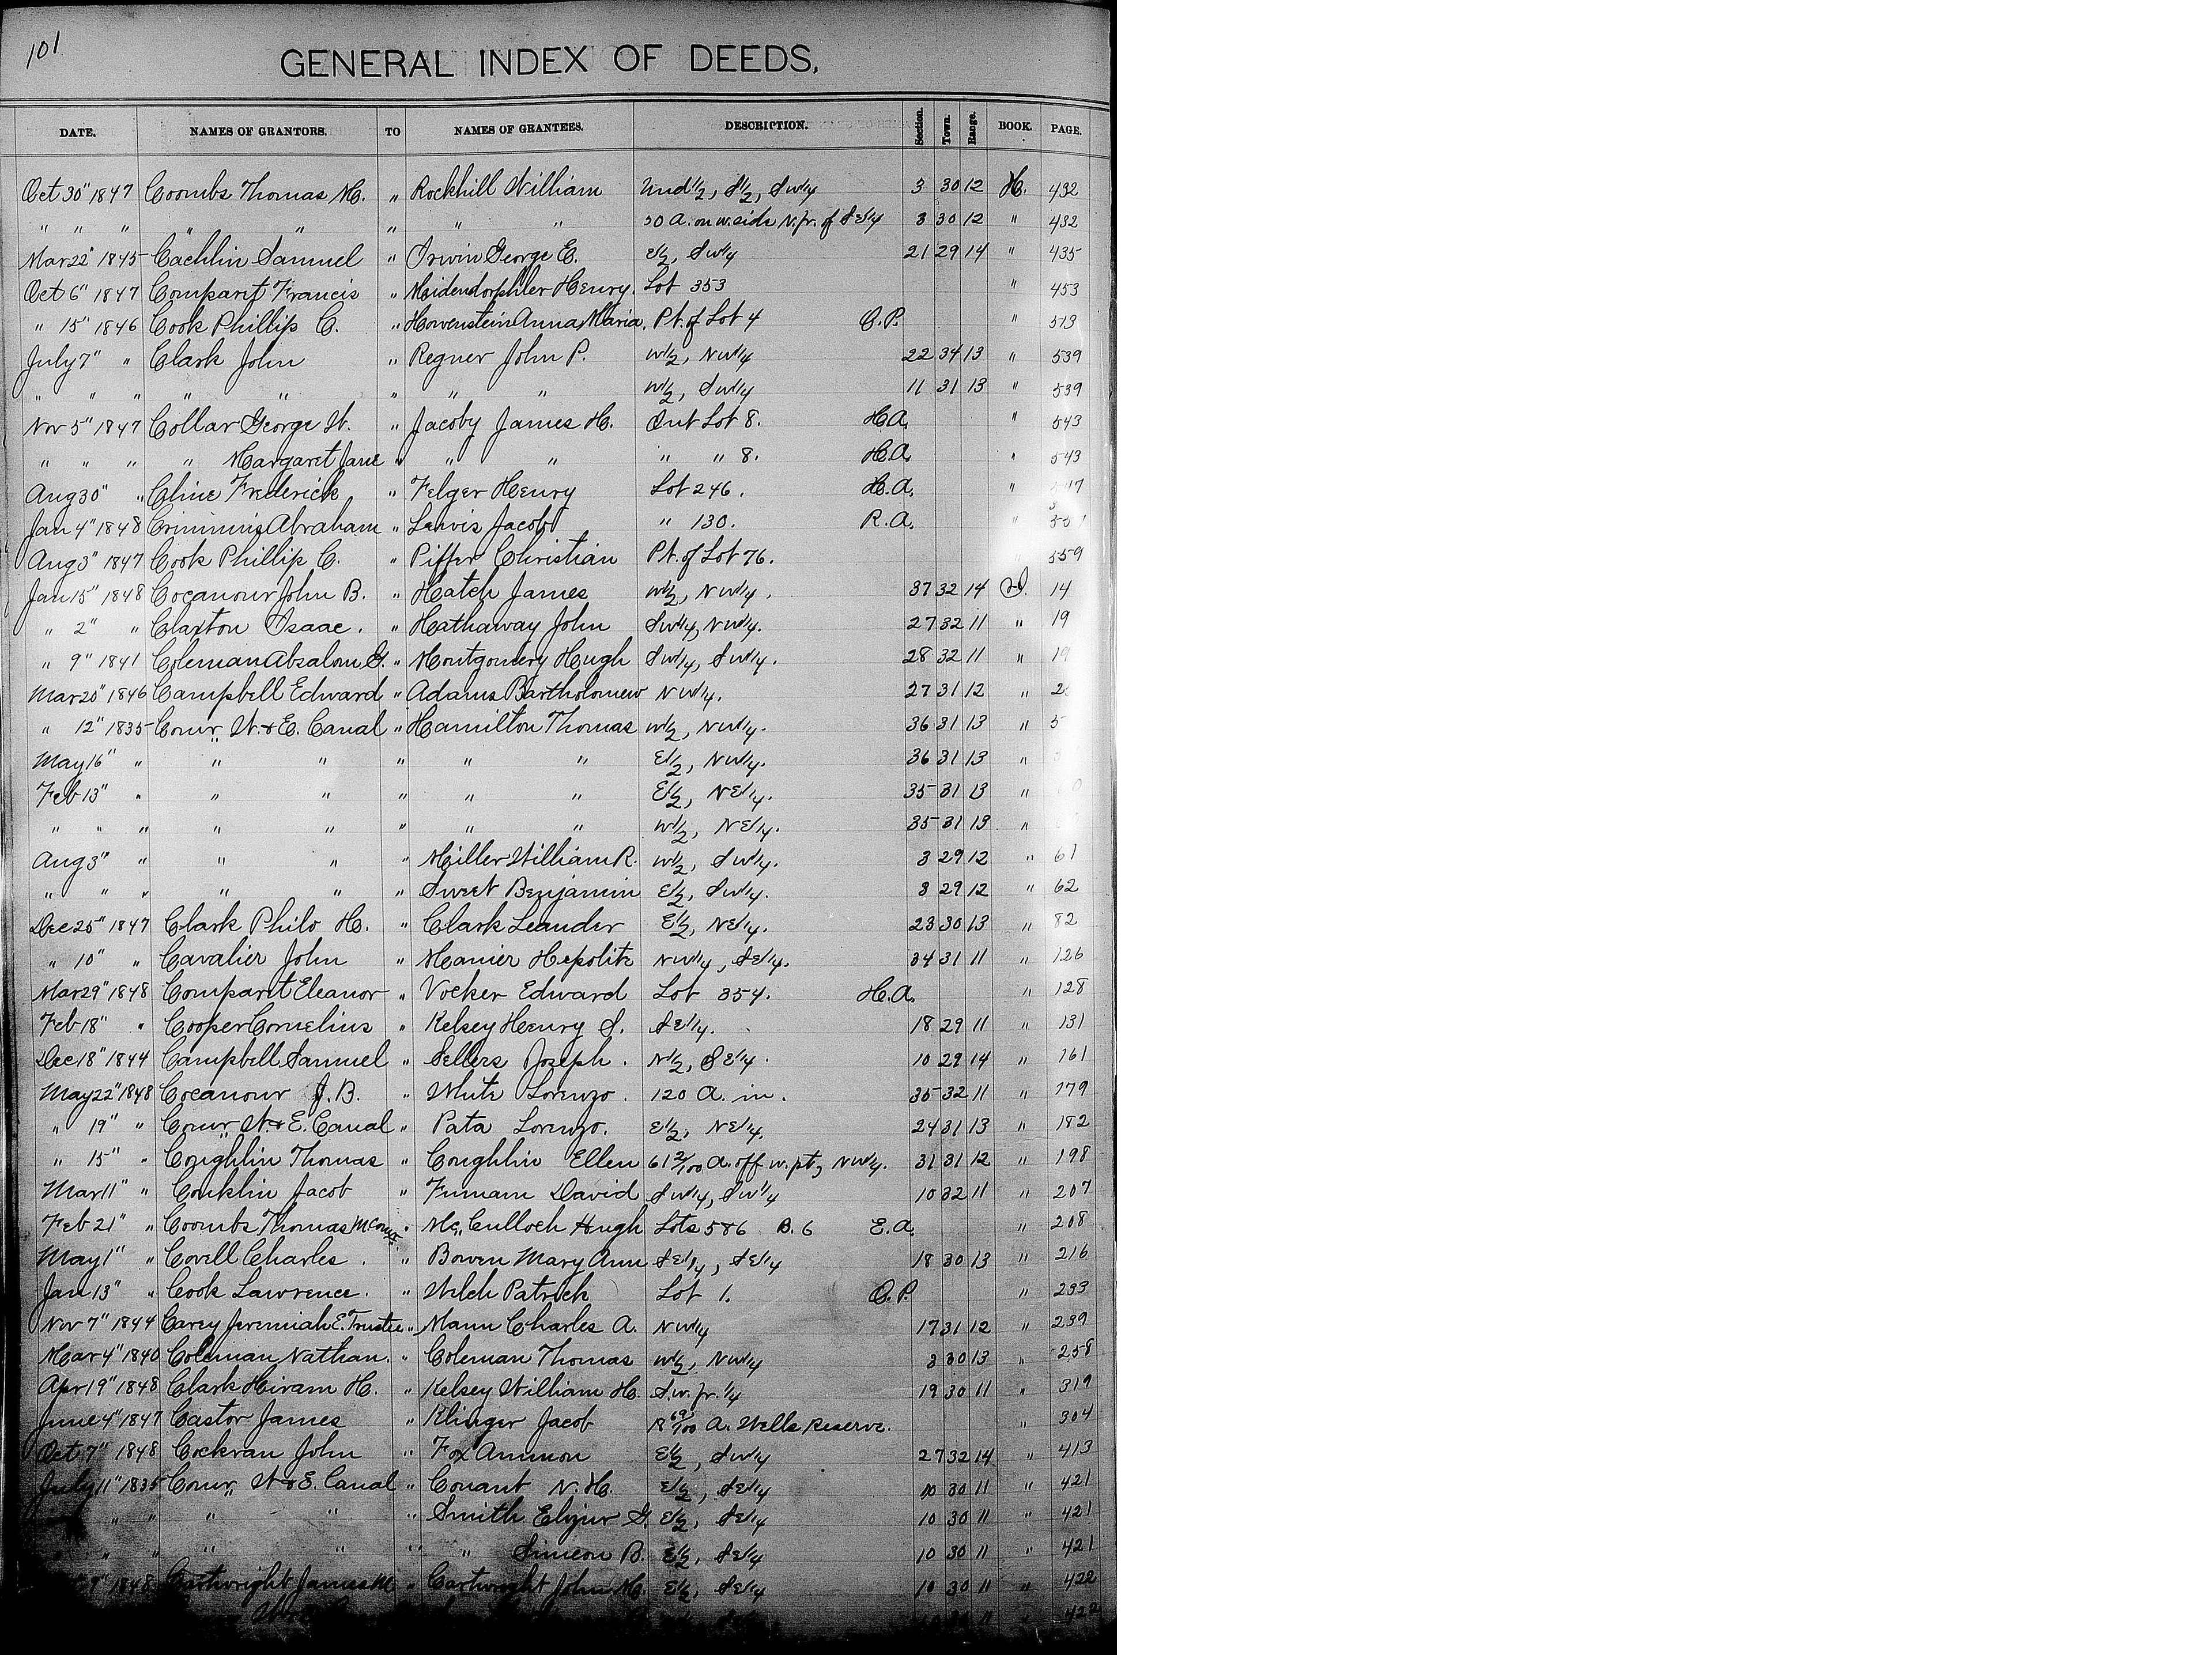 101
GENERAL INDEX OF DEEDS.
DATE. NAMES OF GRANTORS. TO NAMES OF GRANTEES. DESCRIPTION. Section. Town. Range. BOOK. PAGE.
Oct 30" 1847 Coombs Thomas M. " Rockhill William Und 1/2, S 1/2, Sw 1/4 3 30 12 H. 432
" " " " " " " " 50 A. on w. side N. fr. of SE 1/4 3 30 12 " 432
Mar 22" 1845 Cachlin Samuel " Irwin George E. E 1/2, Sw 1/4 21 29 14 " 435
Oct 6" 1847 Comparit Francis " Meidendorphler Henry. Lot 353 " 453
" 15" 1846 Cook Phillip C. " Howenstein Anna Maria. Pt. of Lot 4 O.P. " 513
July 7" " Clark John " Regner John P. W 1/2, NW 1/4 22 34 13 " 539
" " " " " " " " W 1/2, Sw 1/4 11 31 13 " 539
Nov 5" 1847 Collar George W. " Jacoby James H. Out Lot 8. H.A. " 543
" " " " Margaret Jane " " " " " 8. H.A. " 543
Aug 30" " Cline Frederick " Felger Henry Lot 246. H.A. "
Jan 4" 1848 Crimmins Abraham " Lewis Jacob " 130. R.A. "
Aug 3" 1847 Cook Phillip C. " Piffer Christian Pt. of Lot 76. 559
Jan 15" 1848 Cocanour John B. " Hatch James W 1/2, NW 1/4. 37 32 14 14
" 2" " Claxton Isaac. " Hathaway John Sw 1/4, NW 1/4. 27 32 11 " 19
" 9" 1841 Coleman Absalom G. " Montgomery Hugh Sw 1/4, Sw 1/4. 28 32 11 " 19
Mar 20" 1846 Campbell Edward " Adams Bartholomew NW 1/4. 27 31 12 "
" 12" 1835 Comr. W. & E. Canal " Hamilton Thomas W 1/2, NW 1/4. 36 31 13 "
May 16" " " " " " " E 1/2, NW 1/4. 36 31 13 "
Feb 13" " " " " " " E 1/2, NE 1/4. 35 31 13 "
" " " " " " " " W 1/2, NE 1/4. 35 31 13 "
Aug 3" " " " " Miller William R. W 1/2, Sw 1/4. 3 29 12 " 61
" " " " " " Sweet Benjamin E 1/2, Sw 1/4. 8 29 12 " 62
Dec 25" 1847 Clark Philo H. " Clark Leander E 1/2, NE 1/4. 23 30 13 " 82
" 10" " Cavalier John " Manier Hepolite NW 1/4, SE 1/4. 34 31 11 " 126
Mar 29" 1848 Comparit Eleanor " Vocker Edward Lot 354. H.A. " 128
Feb 18" " Cooper Cornelius " Kelsey Henry S. SE 1/4. 18 29 11 " 131
Dec 18" 1844 Campbell Samuel " Sellers Joseph. N 1/2, SE 1/4. 10 29 14 " 161
May 22" 1848 Cocanour J. B. " White Lorenzo. 120 A. in. 35 32 11 " 179
" 19" " Comr. W. & E. Canal " Pata Lorenzo. E 1/2, NE 1/4. 24 31 13 " 182
" 15" " Coughlin Thomas " Coughlin Ellen 61 2/100 A. off w. pt, NW 1/4. 31 31 12 " 198
Mar 11" " Conklin Jacob " Furnam David Sw 1/4, Sw 1/4 10 32 11 " 207
Feb 21" " Coombs Thomas M " McCulloch Hugh Lots 5 & 6 B. 6 E.A. " 208
May 1" " Covell Charles. " Bowen Mary Ann SE 1/4, SE 1/4 18 30 13 " 216
Jan 13" " Cook Lawrence. " Welch Patrick Lot 1. O.P. " 233
Nov 7" 1844 Carey Jeremiah E. Trustee " Mann Charles A. NW 1/4 17 31 12 " 239
Mar 4" 1840 Coleman Nathan. " Coleman Thomas W 1/2, NW 1/4 3 30 13 " 258
Apr 19" 1848 Clark Hiram H. " Kelsey William H. S.w. fr. 1/4 19 30 11 " 319
June 4" 1847 Castor James " Klinger Jacob 18 69/100 A. Wells Reserve. " 304
Oct 7" 1848 Cockran John " Fox Ammon E 1/2, Sw 1/4 27 32 14 " 413
July 11" 1835 Comr. W. & E. Canal " Conant N. H. E 1/2, SE 1/4 10 30 11 " 421
" " " " " Smith Elizur G. E 1/2, SE 1/4 10 30 11 " 421
" " " " " " Simeon B. E 1/2, SE 1/4 10 30 11 " 421
9" 1848 Cartwright James M " Cartwright John M. E 1/2, SE 1/4 10 30 11 " 422
11 " 422